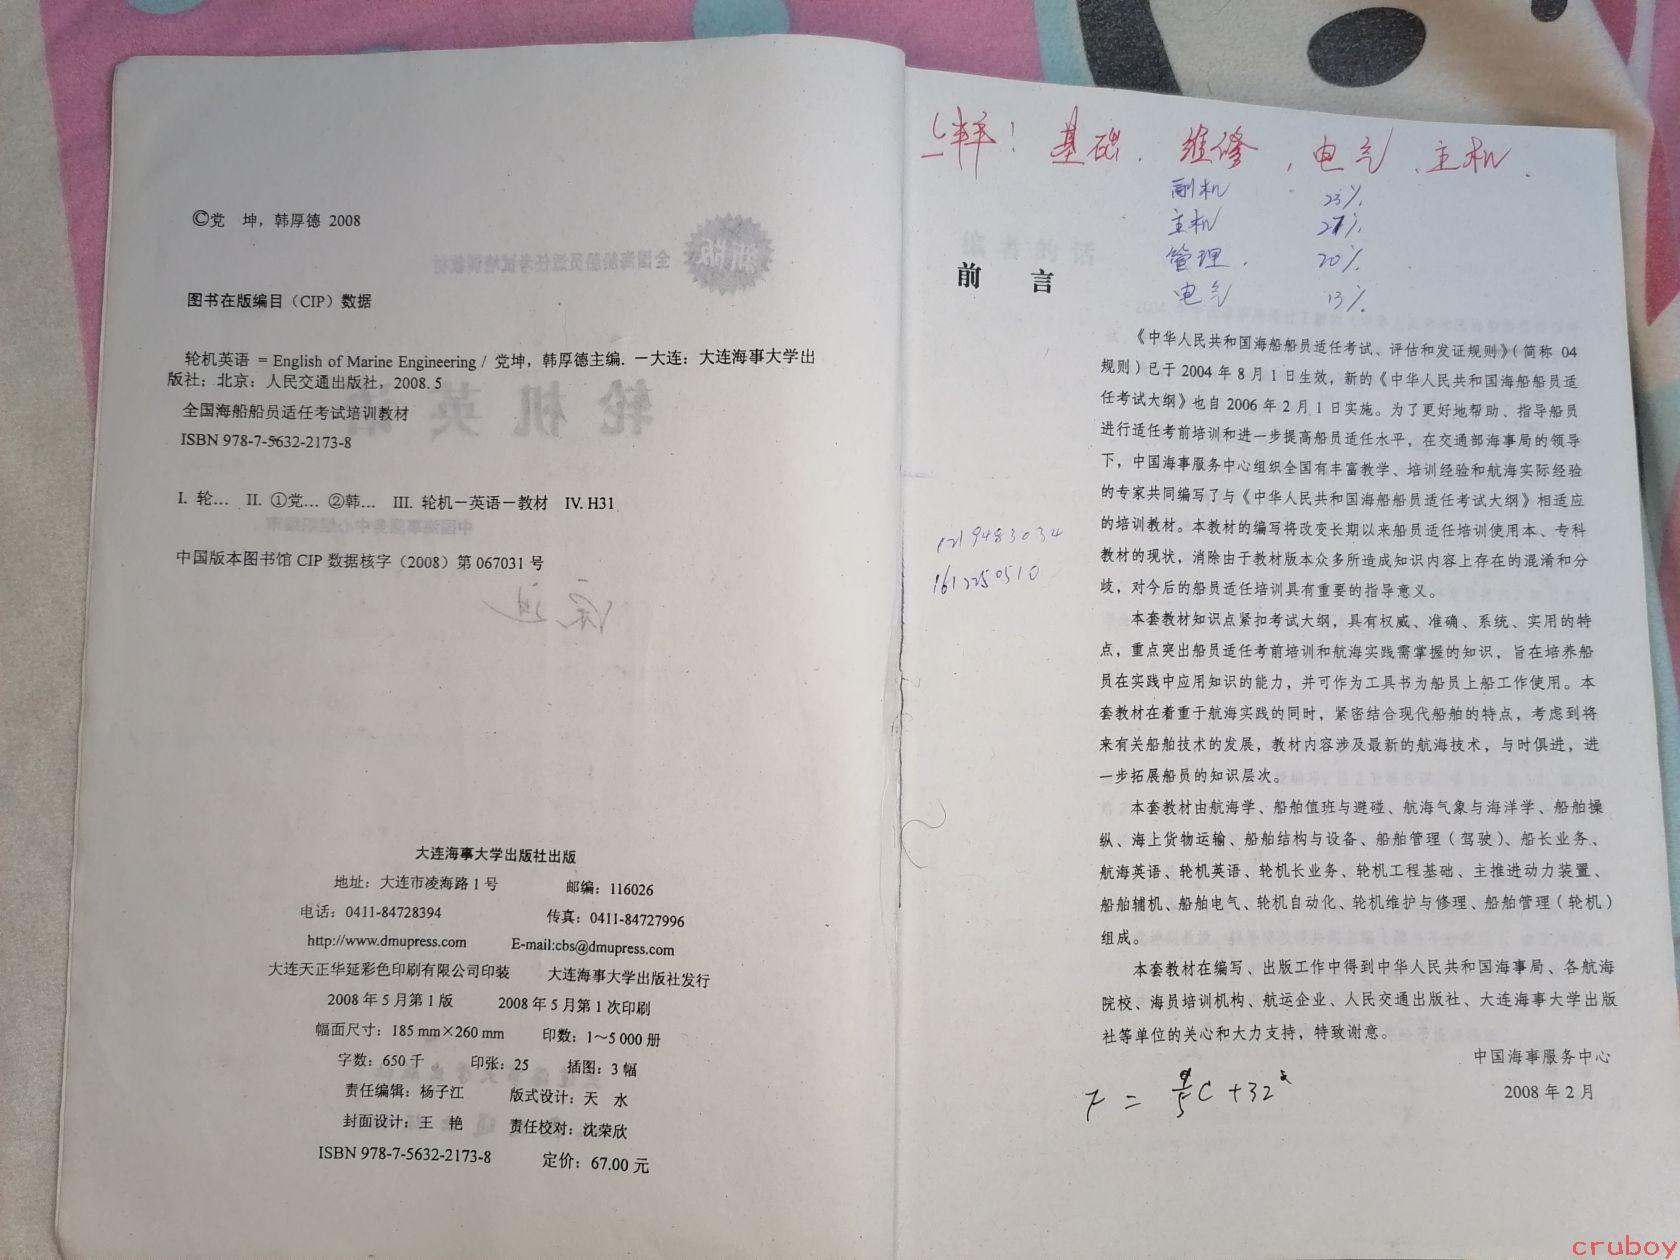 ©党 坤，韩厚德 2008
图书在版编目（CIP）数据
轮机英语 = English of Marine Engineering / 党坤，韩厚德主编. 一大连：大连海事大学出
版社；北京：人民交通出版社，2008. 5
全国海船船员适任考试培训教材
ISBN 978-7-5632-2173-8
I. 轮… II. ①党… ②韩… III. 轮机－英语－教材 IV. H31
中国版本图书馆 CIP 数据核字（2008）第 067031 号
大连海事大学出版社出版
地址：大连市凌海路 1 号 邮编：116026
电话：0411-84728394 传真：0411-84727996
http://www.dmupress.com E-mail:cbs@dmupress.com
大连天正华延彩色印刷有限公司印装 大连海事大学出版社发行
2008 年 5 月第 1 版 2008 年 5 月第 1 次印刷
幅面尺寸：185 mm×260 mm 印数：1～5 000 册
字数：650 千 印张：25 插图：3 幅
责任编辑：杨子江 版式设计：天 水
封面设计：王 艳 责任校对：沈荣欣
ISBN 978-7-5632-2173-8 定价：67.00 元
基础. 维修, 电气, 主机.
副机 23%
主机 21%
管理. 20%
电气 13%
前 言
《中华人民共和国海船船员适任考试、评估和发证规则》（简称 04
规则）已于 2004 年 8 月 1 日生效，新的《中华人民共和国海船船员适
任考试大纲》也自 2006 年 2 月 1 日实施。为了更好地帮助、指导船员
进行适任考前培训和进一步提高船员适任水平，在交通部海事局的领导
下，中国海事服务中心组织全国有丰富教学、培训经验和航海实际经验
的专家共同编写了与《中华人民共和国海船船员适任考试大纲》相适应
的培训教材。本教材的编写将改变长期以来船员适任培训使用本、专科
教材的现状，消除由于教材版本众多所造成知识内容上存在的混淆和分
歧，对今后的船员适任培训具有重要的指导意义。
1219483034
1612250510
本套教材知识点紧扣考试大纲，具有权威、准确、系统、实用的特
点，重点突出船员适任考前培训和航海实践需掌握的知识，旨在培养船
员在实践中应用知识的能力，并可作为工具书为船员上船工作使用。本
套教材在着重于航海实践的同时，紧密结合现代船舶的特点，考虑到将
来有关船舶技术的发展，教材内容涉及最新的航海技术，与时俱进，进
一步拓展船员的知识层次。
本套教材由航海学、船舶值班与避碰、航海气象与海洋学、船舶操
纵、海上货物运输、船舶结构与设备、船舶管理（驾驶）、船长业务、
航海英语、轮机英语、轮机长业务、轮机工程基础、主推进动力装置、
船舶辅机、船舶电气、轮机自动化、轮机维护与修理、船舶管理（轮机）
组成。
本套教材在编写、出版工作中得到中华人民共和国海事局、各航海
院校、海员培训机构、航运企业、人民交通出版社、大连海事大学出版
社等单位的关心和大力支持，特致谢意。
中国海事服务中心
2008 年 2 月
F = 9/5 C + 32°
cruboy